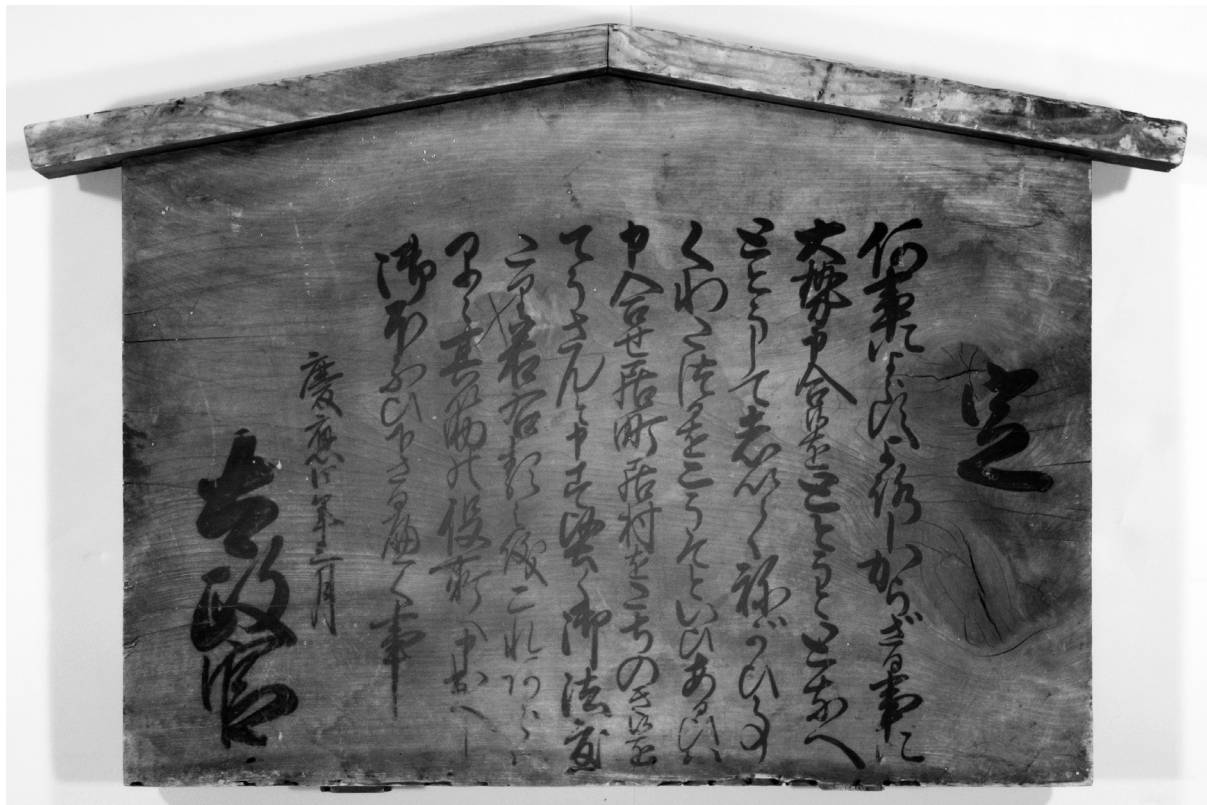 定
何事によらすよろしからざる事に
大勢申合候をととうととなへ
ととうしてしいてねがひ事
くわたつるをこうそといひあるひハ
申合せ居町居村をたちのき候を
てうさんと申す堅く御法度
たり若右類之儀これあらハ
早々其筋の役所へ申出へし
御ほうひ下さるへく事
慶應四年三月
太政官